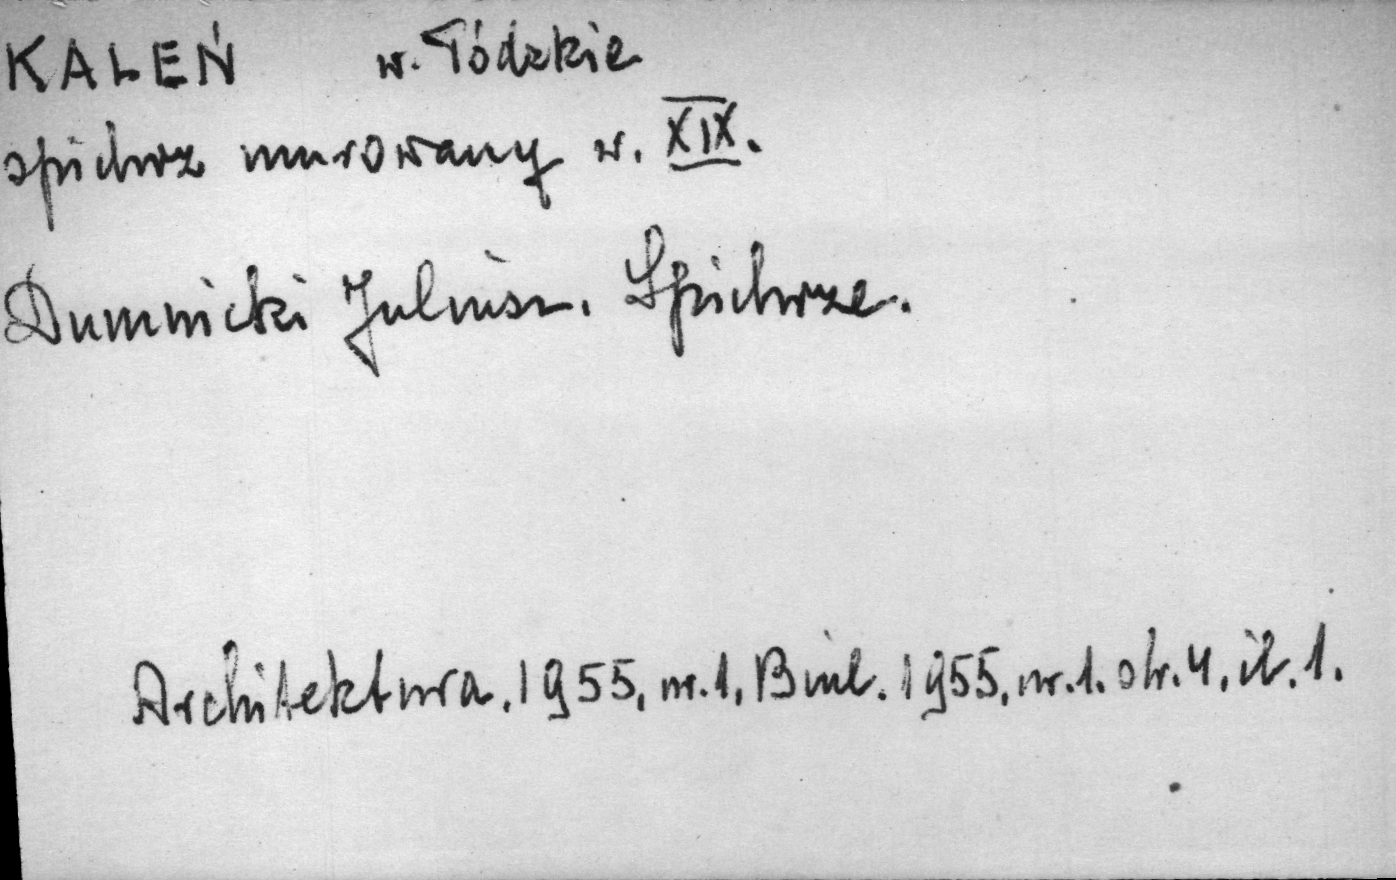 KALEŃ w. Łódzkie
spichrz murowany w. XIX.
Dumnicki Juliusz. Spichrze.
Architektura. 1955, nr. 1, Biul. 1955, nr. 1. str. 4, il. 1.